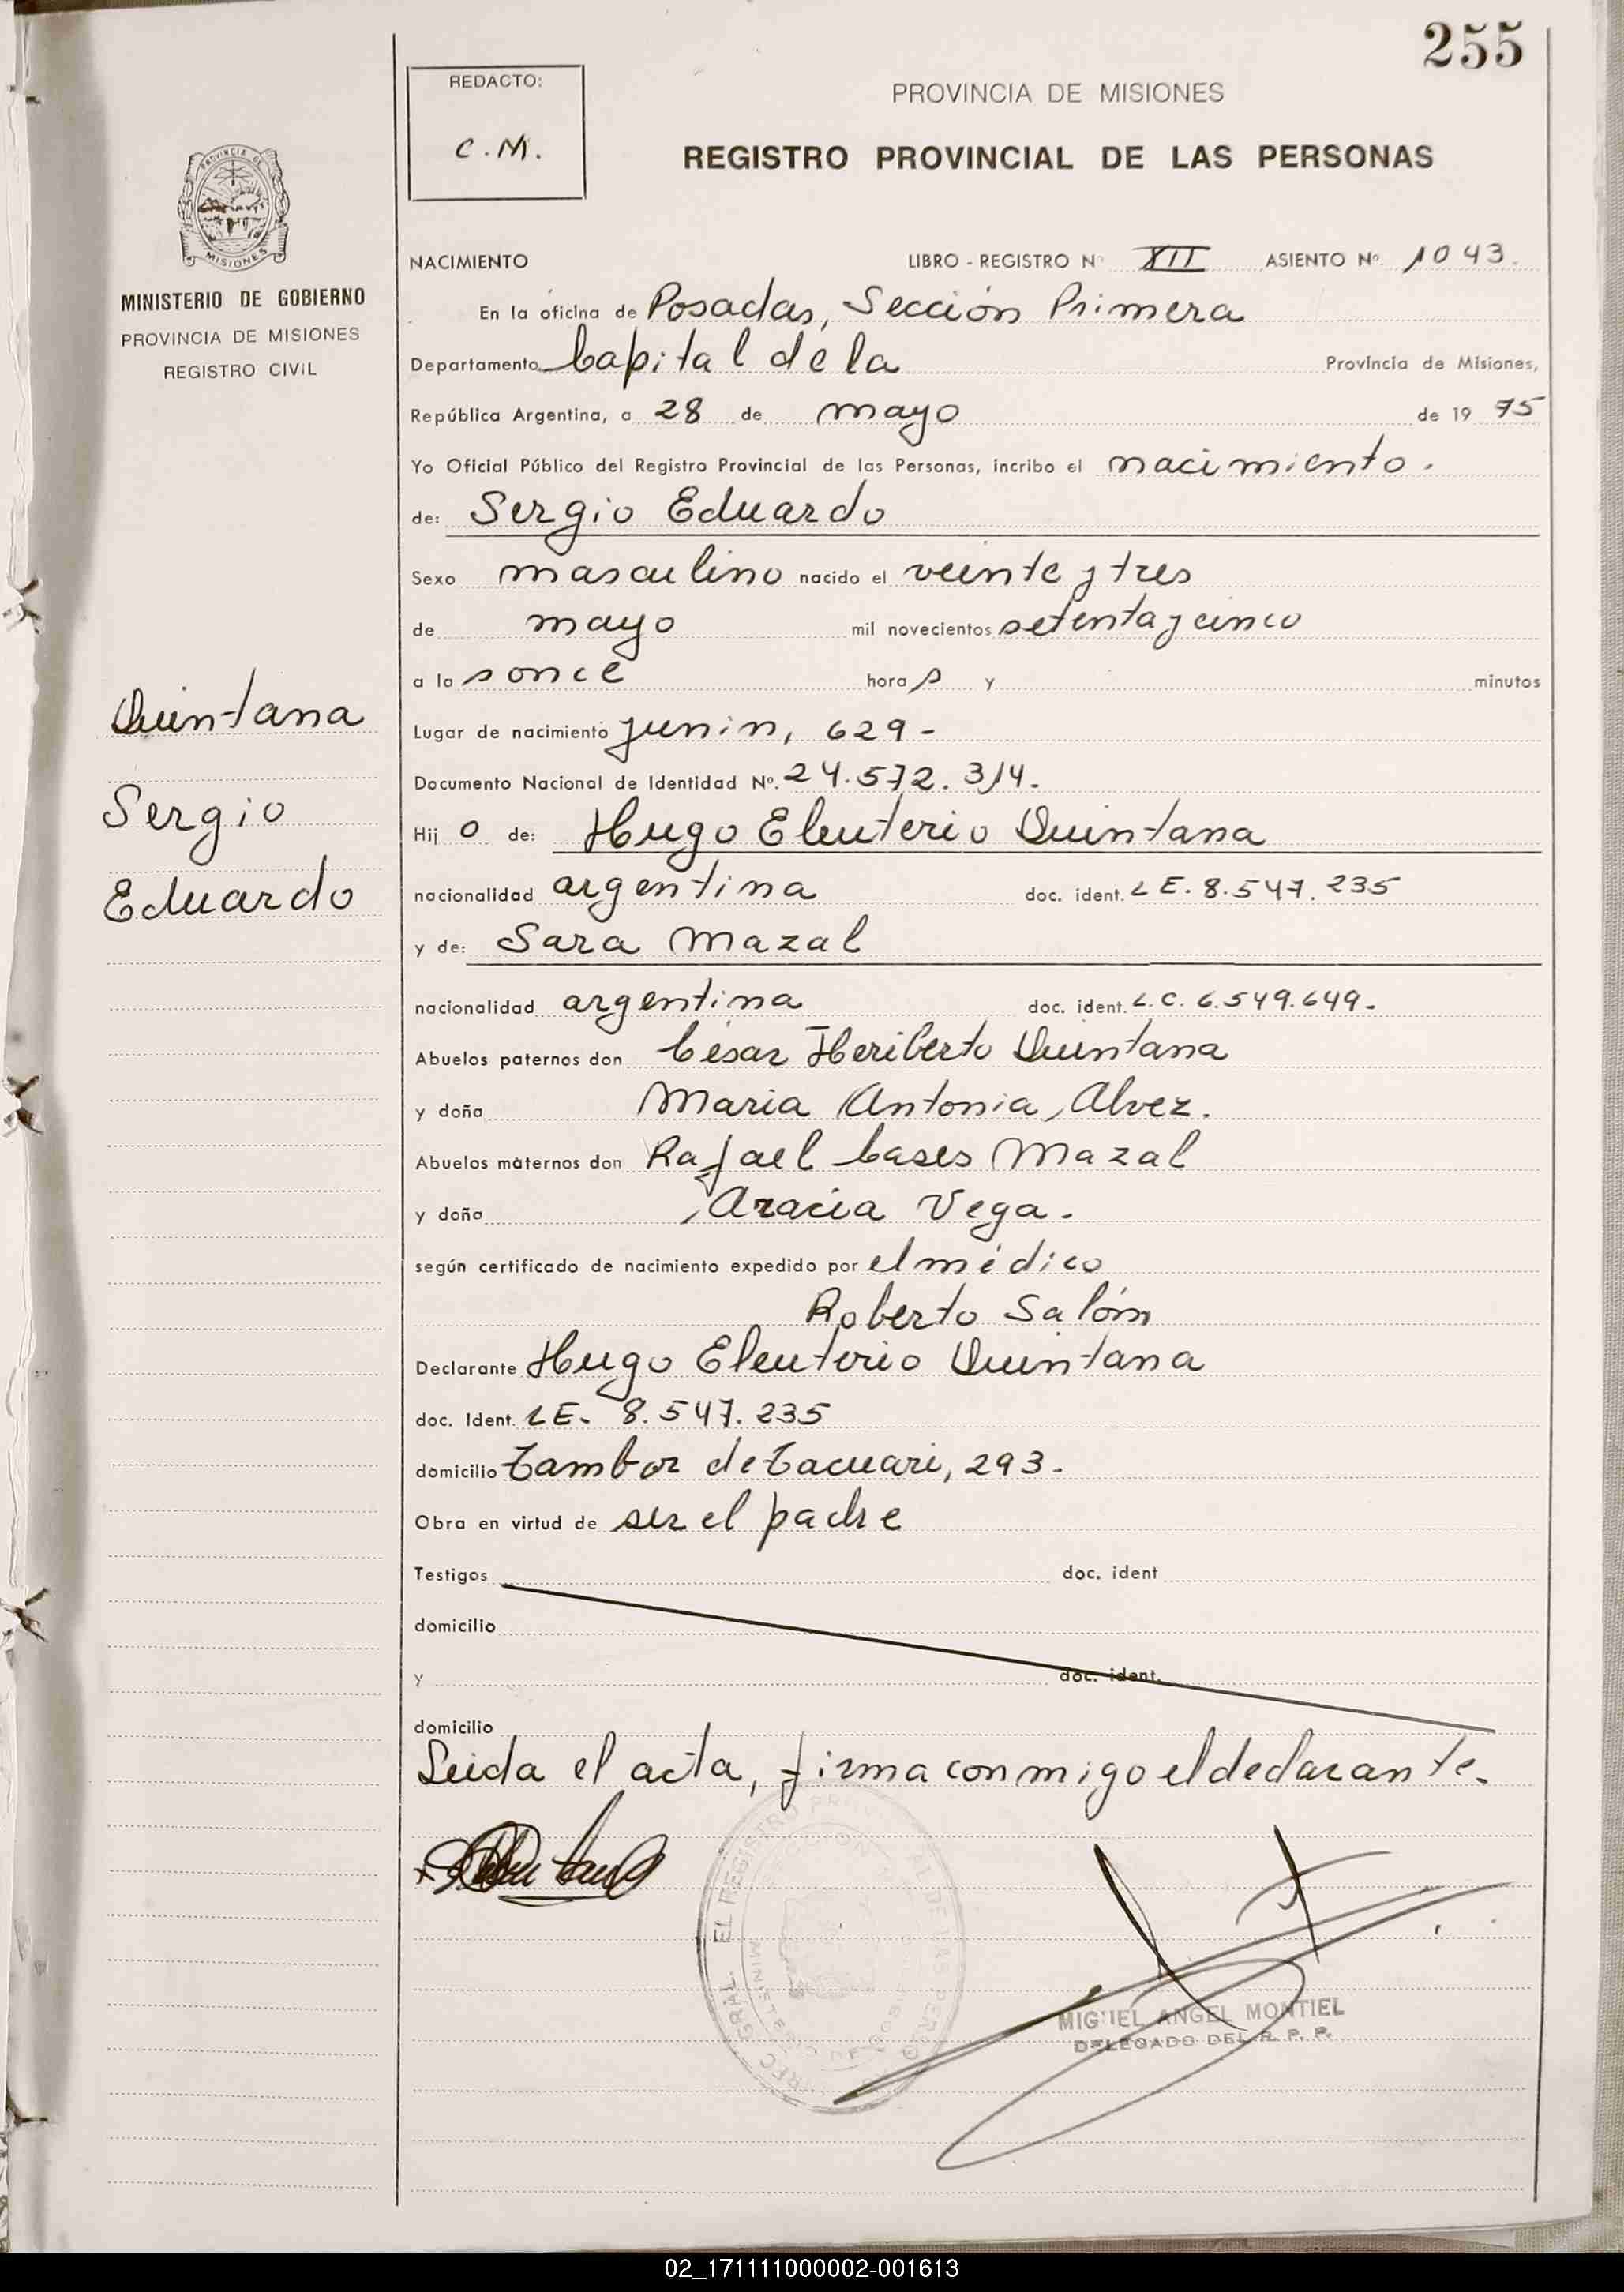 255
REDACTO:
C.M.
PROVINCIA DE MISIONES
REGISTRO PROVINCIAL DE LAS PERSONAS
PROVINCIA DE
MISIONES
MINISTERIO DE GOBIERNO
PROVINCIA DE MISIONES
REGISTRO CIVIL
NACIMIENTO LIBRO - REGISTRO Nº XII ASIENTO Nº 1043.
En la oficina de Posadas, Sección Primera
Departamento Capital de la Provincia de Misiones,
República Argentina, a 28 de mayo de 19 75
Yo Oficial Público del Registro Provincial de las Personas, incribo el nacimiento.
de: Sergio Eduardo
Sexo masculino nacido el veinte y tres
de mayo mil novecientos setenta y cinco
a la s once hora s y minutos
Quintana
Lugar de nacimiento Junin, 629-
Documento Nacional de Identidad Nº. 24.572.314.
Sergio
Hij o de: Hugo Eleuterio Quintana
Eduardo
nacionalidad argentina doc. ident. LE. 8.547.235
y de: Sara Mazal
nacionalidad argentina doc. ident. L.C. 6.549.649.-
Abuelos paternos don César Heriberto Quintana
y doña Maria Antonia Alvez.
Abuelos maternos don Rafael Cases Mazal
y doña Aracia Vega.
según certificado de nacimiento expedido por el médico
Roberto Salóm
Declarante Hugo Eleuterio Quintana
doc. Ident. LE. 8.547.235
domicilio Tambor de Tacuari, 293.
Obra en virtud de ser el padre
Testigos doc. ident
domicilio
y doc. ident.
domicilio
Leida el acta, firma conmigo el declarante.
EL REGISTRO PROVINCIAL DE LAS PERSO
MIGUEL ANGEL MONTIEL
DELEGADO DEL R. P. P.
02_171111000002-001613